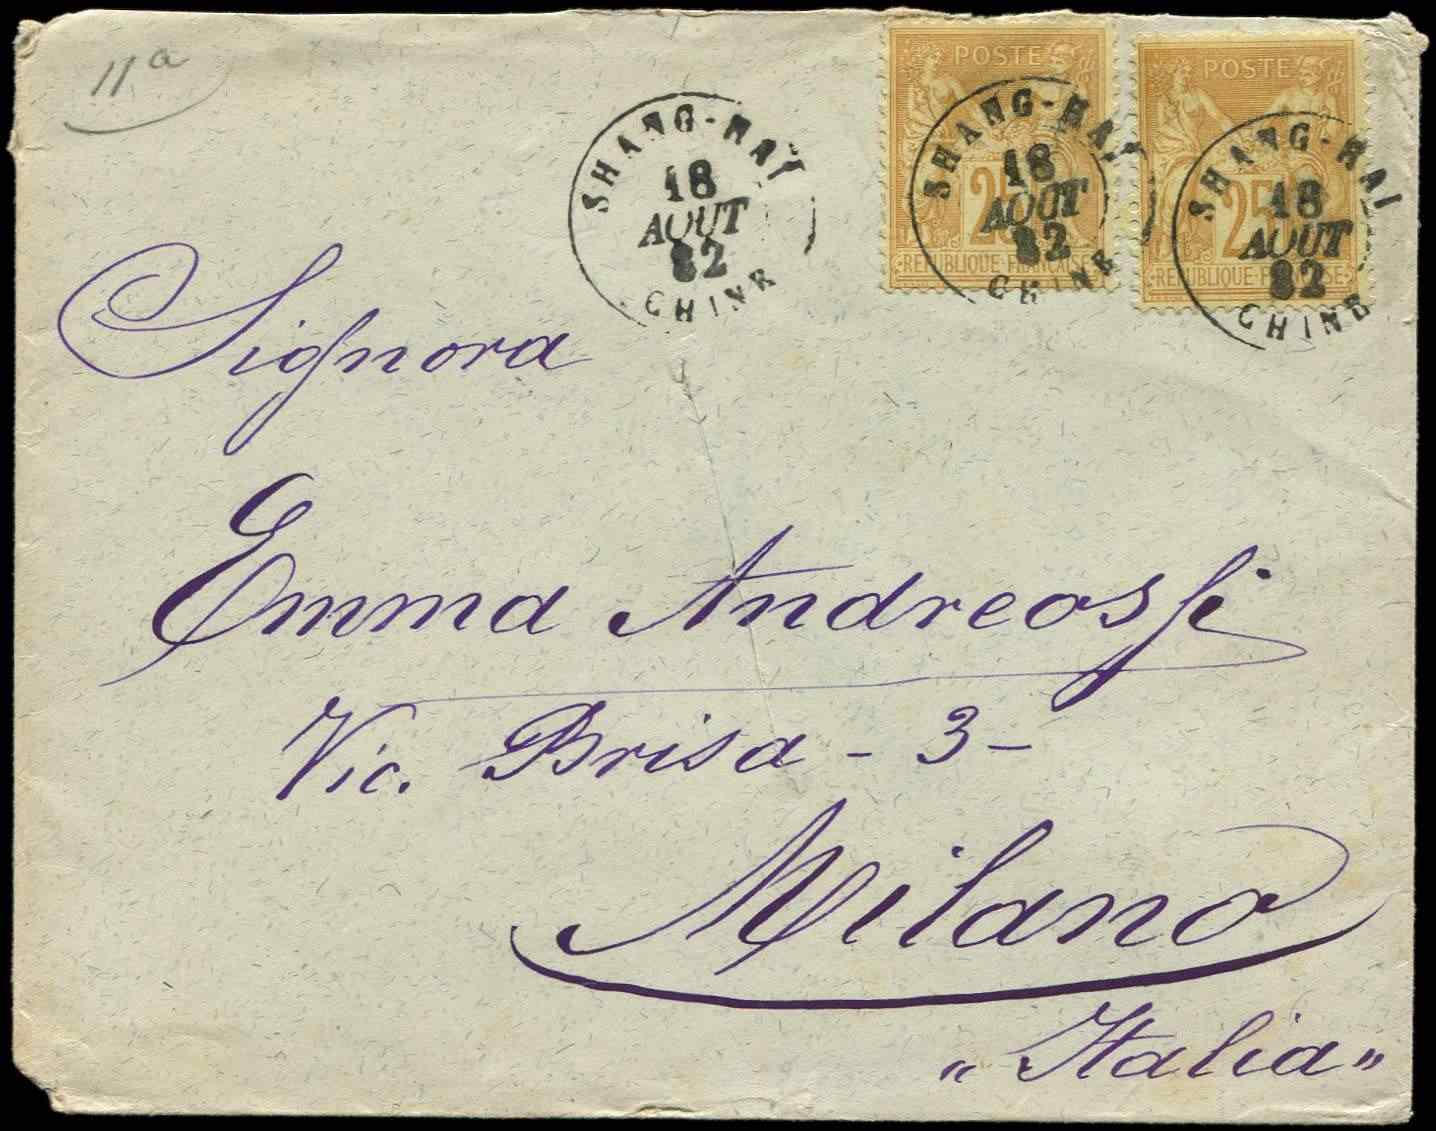 11a
POSTE
25
REPUBLIQUE FRANÇAISE
POSTE
25
REPUBLIQUE FRANÇAISE
SHANG-HAÏ
18
AOUT
82
CHINE
SHANG-HAÏ
18
AOUT
82
CHINE
SHANG-HAI
18
AOUT
82
CHINE
Signora
Emma Andreossi
Via. Brisa - 3 -
Milano
„ Italia "